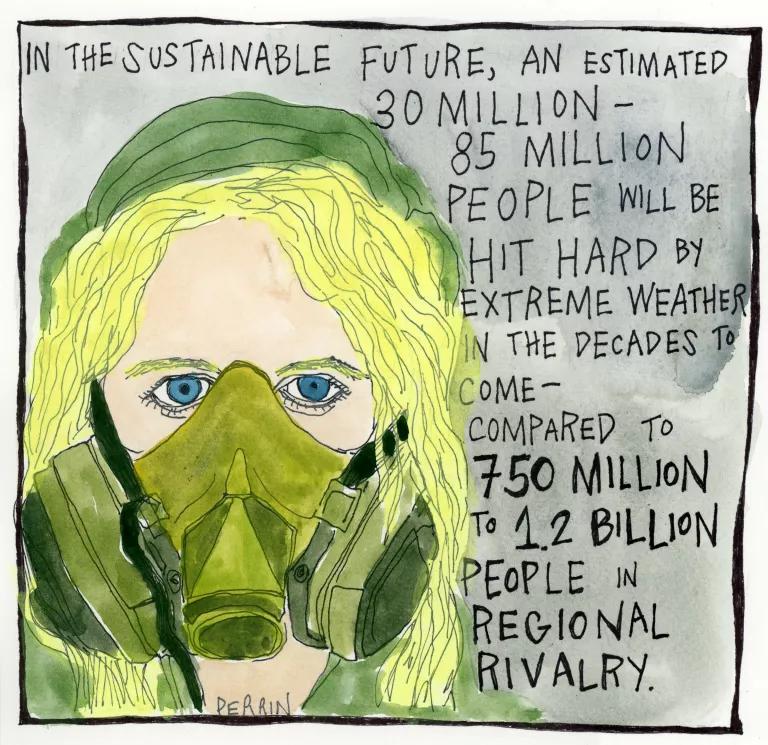 IN THE SUSTAINABLE FUTURE, AN ESTIMATED
30 MILLION -
85 MILLION
PEOPLE WILL BE
HIT HARD BY
EXTREME WEATHER
IN THE DECADES TO
COME-
COMPARED TO
750 MILLION
TO 1.2 BILLION
PEOPLE IN
REGIONAL
RIVALRY.
PERRIN